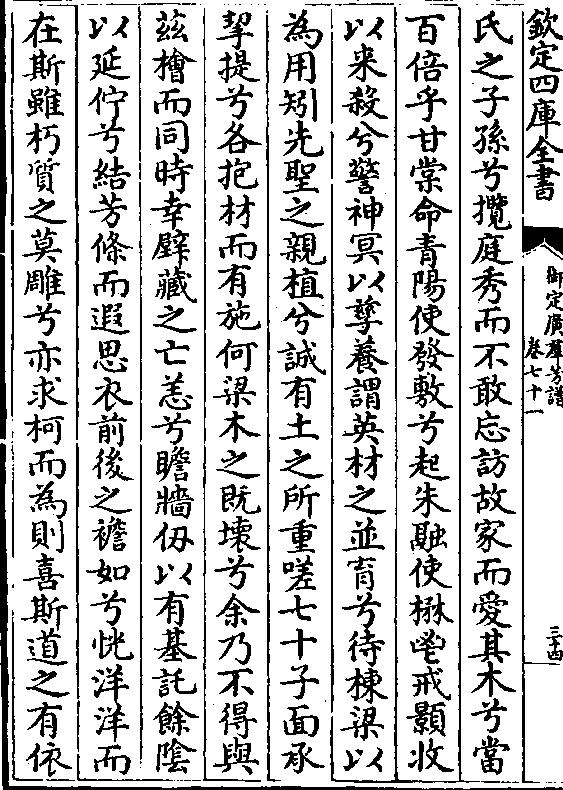 欽定四庫全書
御定廣羣芳譜
卷七十一
三十四
氏之子孫兮攬庭秀而不敢忘訪故家而愛其木兮當
百倍乎甘棠命青陽使發敷兮起朱融使楙鬯戒顥收
以来殺兮警神冥以孳養謂英材之並育兮待棟梁以
為用矧先聖之親植兮誠有土之所重嗟七十子面承
挈提兮各抱材而有施何梁木之既壞兮余乃不得與
茲檜而同時幸壁藏之亡恙兮瞻牆仞以有基託餘陰
以延佇兮結芳條而遐思衣前後之襜如兮恍洋洋而
在斯雖朽質之莫雕兮亦求柯而為則喜斯道之有依